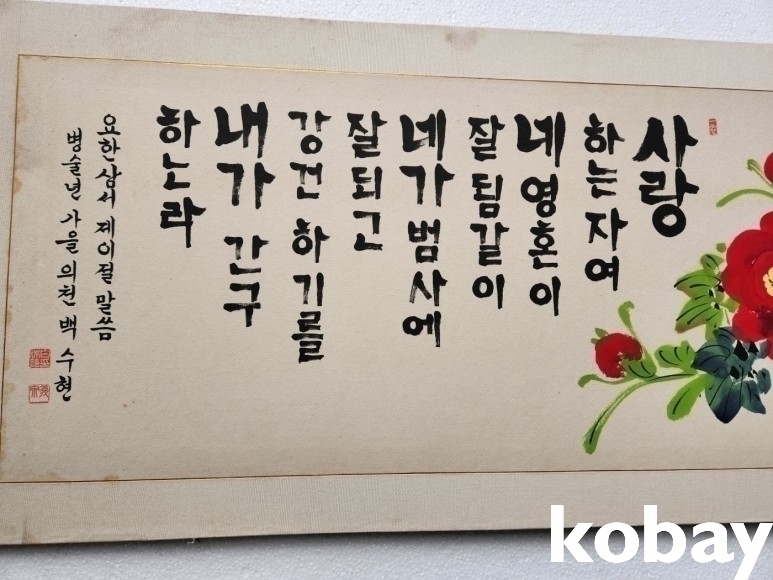 사랑
하는자여
네영혼이
잘됨같이
네가범사에
잘되고
강건하기를
내가간구
하노라
요한삼서 제이절 말씀
병술년 가을 의천 백수현
kobay